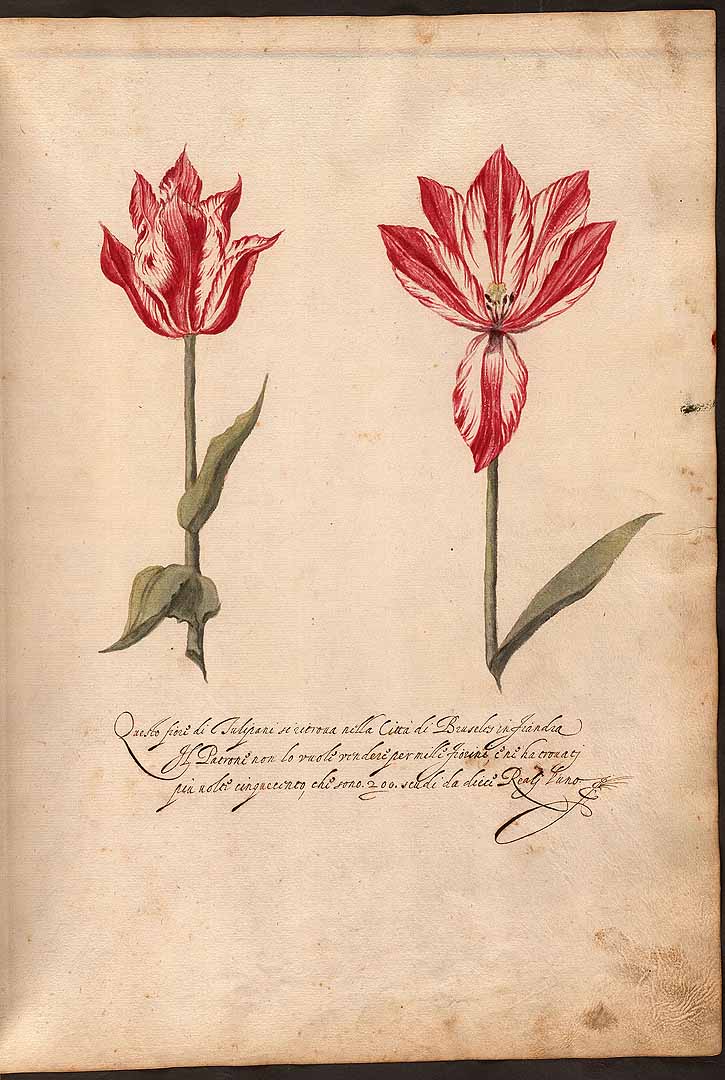 Questo fiore di Tulipani si ritroua nella Città di Bruseles in fiandra
Il Patrone non lo vuole vendere per mille fiorini, e ne ha trouati
piu uolte cinquecento, che sono .200. scudi da dieci Realj l'uno